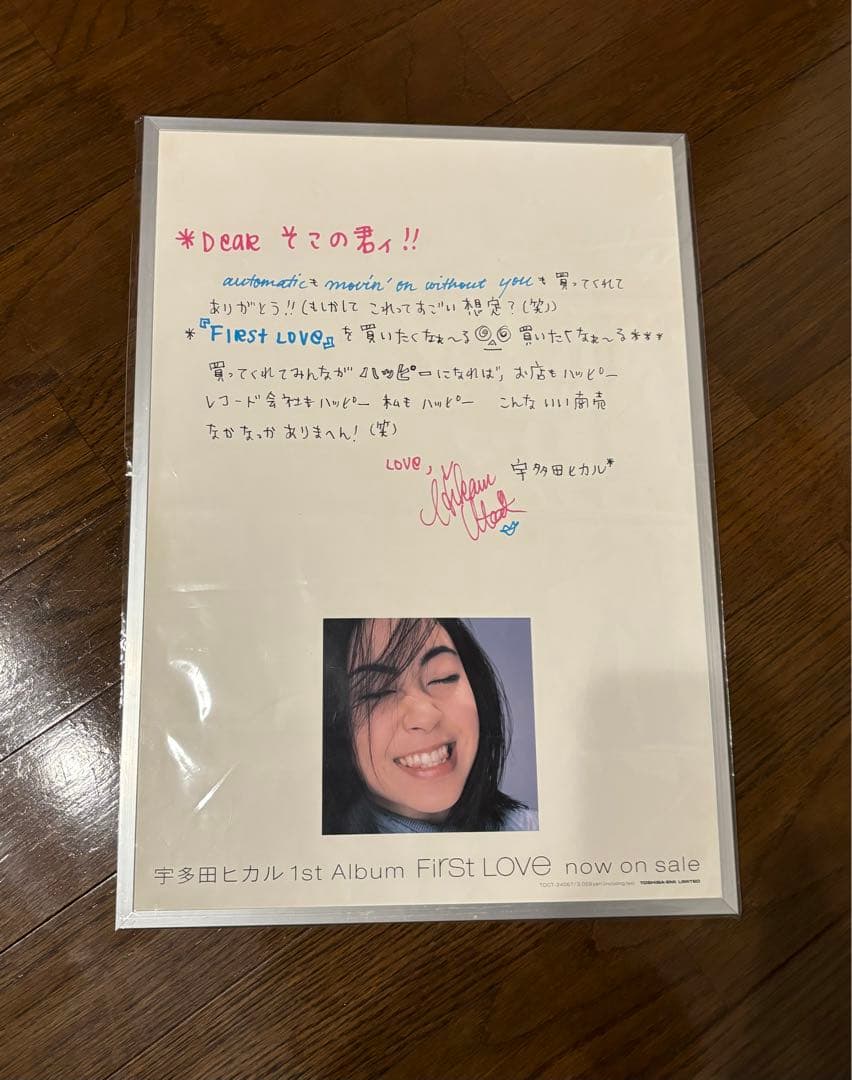 *Dear そこの君ィ!!
automaticも movin' on without youも 買ってくれて
ありがとう!!(もしかして これってすごい 想定?(笑))
*『First Love』を買いたくなぁ〜る 買いたくなぁ〜る***
買ってくれてみんなが ハッピーになれば、お店もハッピー
レコード会社もハッピー 私もハッピー こんないい商売
なかなっか ありまへん!(笑)
Love, 宇多田ヒカル*
宇多田ヒカル 1st Album First Love now on sale
TOCT-24067 / 3,059yen (including tax) TOSHIBA-EMI LIMITED